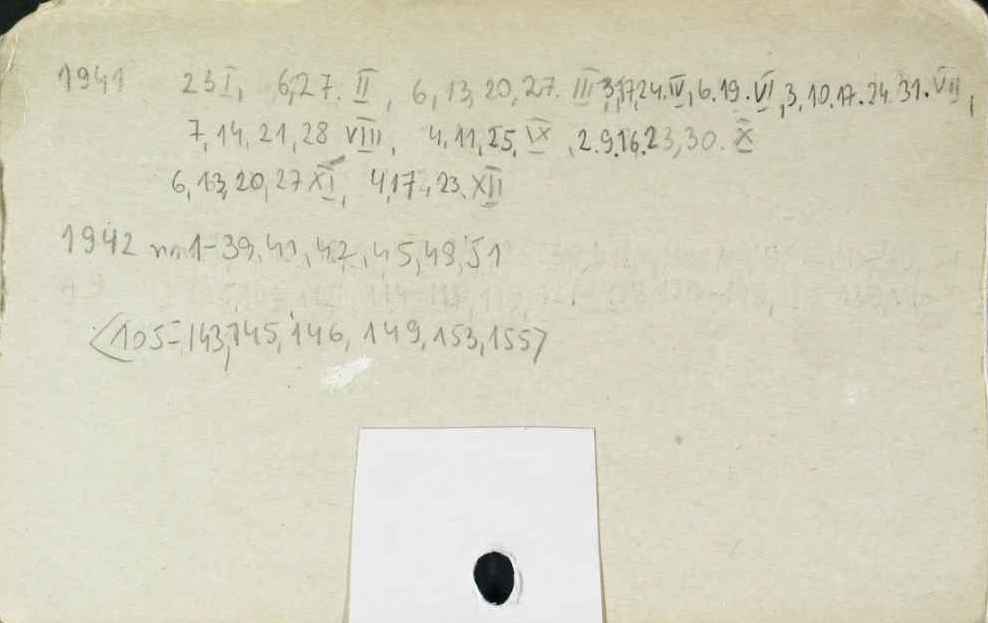 1941 23 I, 6,27. II, 6,13,20,27. III 3,17,24.IV, 6.19.VI, 3.10.17.24.31.VII,
7,14,21,28 VIII, 4,11,25,IX, 2.9.16.23,30.X
6,13,20,27 XI, 4,17,23.XII
1942 nr. 1-39,41,42,45,49,51
<105-143,145,146,149,153,155>